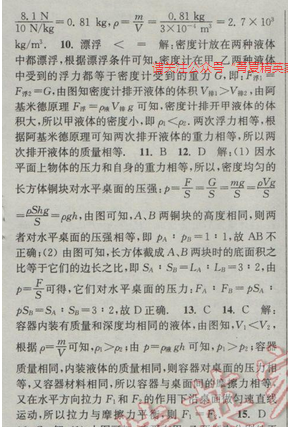 8.1 N/10 N/kg = 0.81 kg, ρ = m/V = 0.81 kg/3×10⁻⁴ m³ = 2.7×10³
kg/m³. 10. 漂浮 < = 解:密度计放在两种液体
中都漂浮,根据漂浮条件可知,密度计在甲、乙两种液体
中受到的浮力都等于密度计受到的重力 G,即 F浮1 =
F浮2 = G,由图知密度计排开液体的体积 V排1 > V排2,由阿
基米德原理 F浮 = ρ液V排g 可知,密度计排开甲液体的体
积大,所以甲液体的密度小,即 ρ1<ρ2. 两次浮力相等,根
据阿基米德原理可知两次排开液体的重力相等,所以两
次排开液体的质量相等. 11. B 12. D 解:(1)因水
平面上物体的压力和自身的重力相等,所以,密度均匀的
长方体铜块对水平桌面的压强:p = F/S = G/S = mg/S = ρVg/S
= ρShg/S = ρgh,由图可知,A、B 两铜块的高度相同,则两
者对水平桌面的压强相等,即 pA : pB = 1 : 1,故 AB 不
正确;(2)由图可知,长方体截成 A、B 两块时的底面积之
比等于它们的边长之比,即 SA : SB = LA : LB = 3 : 2,由
p = F/S 可得,它们对水平桌面的压力:FA : FB = pSA :
pSB = SA : SB = 3 : 2,故 D 正确. 13. C 14. C 解:
容器内装有质量和深度均相同的液体,由图知,V1<V2,
根据 ρ = m/V 可知,ρ1>ρ2;由 p = ρ液gh 可知,p1>p2;容器
质量相同,内装液体的质量相同,则容器对桌面的压力相
等,又容器材料相同,所以容器与桌面间的摩擦力相等,
又在水平方向拉力 F1 和 F2 的作用下沿桌面做匀速直线
运动,所以拉力与摩擦力平衡,则 F1 = F2. 15. D